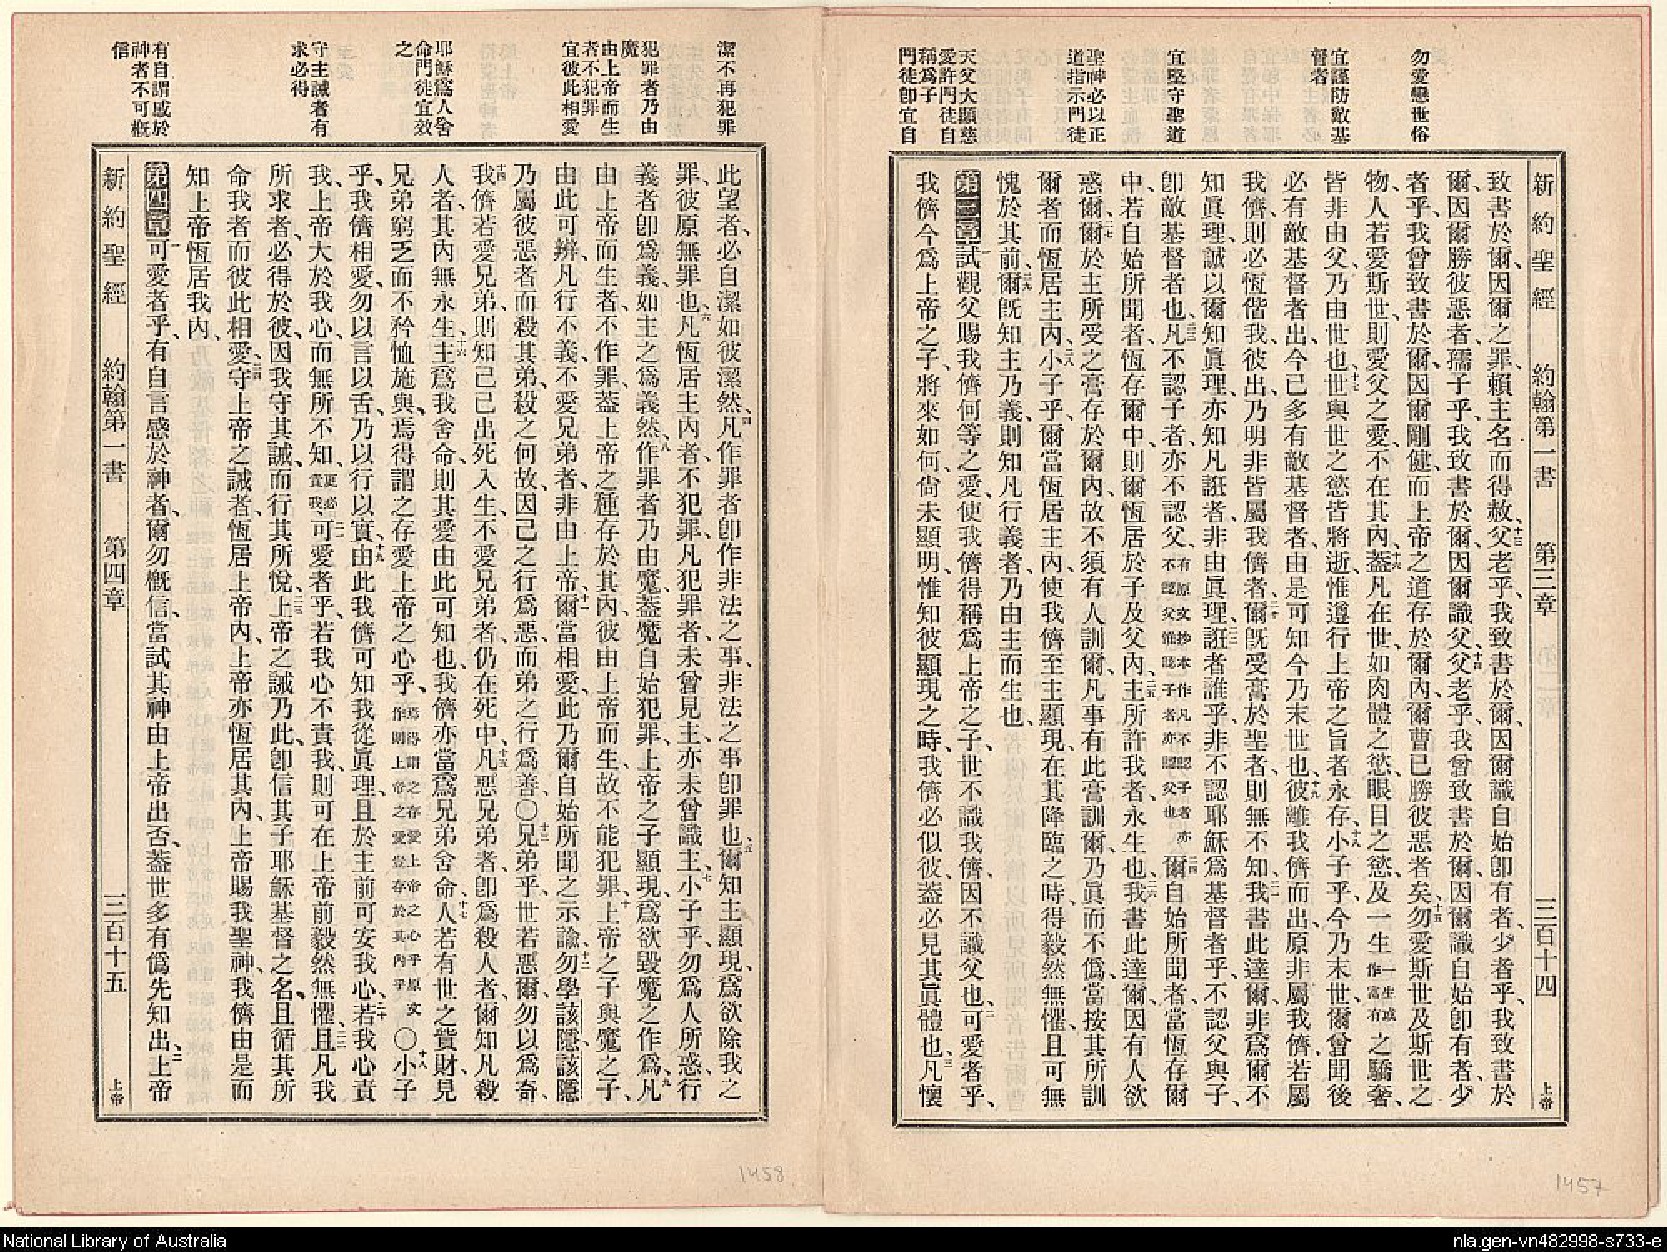 勿愛戀世俗
宜謹防敵基
督者
宜堅守聖道
聖神必以正
道指示門徒
天父大顯慈
愛許門徒自
稱爲子
門徒卽宜自
新約聖經 約翰第一書 第三章 三百十四 上帝
致書於爾、因爾之罪、賴主名而得赦、十三父老乎、我致書於爾、因爾識自始卽有者、少者乎、我致書於
爾、因爾勝彼惡者、孺子乎、我致書於爾、因爾識父、十四父老乎、我曾致書於爾、因爾識自始卽有者、少
者乎、我曾致書於爾、因爾剛健、而上帝之道存於爾內、爾曹已勝彼惡者矣、十五勿愛斯世、及斯世之
物、人若愛斯世、則愛父之愛、不在其內、十六蓋凡在世、如肉體之慾、眼目之慾、及一生一生或作富有之驕奢、
皆非由父、乃由世也、十七世與世之慾皆將逝、惟遵行上帝之旨者永存、十八小子乎、今乃末世、爾曾聞後
必有敵基督者出、今已多有敵基督者、由是可知今乃末世也、十九彼離我儕而出、原非屬我儕、若屬
我儕、則必恆偕我、彼出、乃明非皆屬我儕者、二十爾旣受膏於聖者、則無不知、二一我書此達爾、非爲爾不
知眞理、誠以爾知眞理、亦知凡誑者、非由眞理、二二誑者誰乎、非不認耶穌爲基督者乎、不認父與子、
卽敵基督者也、二三凡不認子者、亦不認父、有原文抄本作凡不認子者亦不認父備認子者亦認父也二四爾自始所聞者、當恆存爾
中、若自始所聞者、恆存爾中、則爾恆居於子及父內、二五主所許我者、永生也、二六我書此達爾、因有人欲
惑爾、二七爾於主所受之膏存於爾內、故不須有人訓爾、凡事有此膏訓爾、乃眞而不僞、當按其所訓
爾者而恆居主內、二八小子乎、爾當恆居主內、使我儕至主顯現、在其降臨之時、得毅然無懼、且可無
愧於其前、二九爾旣知主乃義、則知凡行義者、乃由主而生也、
第三章一試觀父賜我儕何等之愛、使我儕得稱爲上帝之子、世不識我儕、因不識父也、二可愛者乎、
我儕今爲上帝之子、將來如何、尙未顯明、惟知彼顯現之時、我儕必似彼、蓋必見其眞體也、三凡懷
潔不再犯罪
犯罪者乃由
魔
由上帝而生
者不犯罪
宜彼此相愛
耶穌爲人舍
命門徒宜效
之
守主誡者有
求必得
有自謂感於
神者不可槪
信
此望者、必自潔如彼潔然、四凡作罪者、卽作非法之事、非法之事卽罪也、五爾知主顯現、爲欲除我之
罪、彼原無罪也、六凡恆居主內者、不犯罪、凡犯罪者、未曾見主、亦未曾識主、七小子乎、勿爲人所惑、行
義者卽爲義、如主之爲義然、八作罪者乃由魔、蓋魔自始犯罪、上帝之子顯現、爲欲毀魔之作爲、九凡
由上帝而生者、不作罪、蓋上帝之種存於其內、彼由上帝而生、故不能犯罪、十上帝之子與魔之子、
由此可辨、凡行不義、不愛兄弟者、非由上帝、十一爾當相愛、此乃爾自始所聞之示諭、十二勿學該隱、該隱
乃屬彼惡者、而殺其弟、殺之何故、因己之行爲惡、而弟之行爲善、〇十三兄弟乎、世若惡爾、勿以爲奇、
十四我儕若愛兄弟、則知已出死入生、不愛兄弟者、仍在死中、十五凡惡兄弟者、卽爲殺人者、爾知凡殺
人者、其內無永生、十六主爲我舍命、則其愛由此可知也、我儕亦當爲兄弟舍命、十七人若有世之貲財、見
兄弟窮乏、而不矜恤施與、焉得謂之存愛上帝之心乎、焉得謂之存愛上帝之心乎原文作則上帝之愛當存於其內乎〇十八小子
乎、我儕相愛、勿以言以舌、乃以行以實、十九由此我儕可知我從眞理、且於主前可安我心、二十若我心責
我、上帝大於我心、而無所不知、更必責我、二一可愛者乎、若我心不責我、則可在上帝前毅然無懼、二二且凡我
所求者、必得於彼、因我守其誡、而行其所悅、二三上帝之誡乃此、卽信其子耶穌基督之名、且循其所
命我者而彼此相愛、二四守上帝之誡者、恆居上帝內、上帝亦恆居其內、上帝賜我聖神、我儕由是而
知上帝恆居我內、
第四章一可愛者乎、有自言感於神者、爾勿槪信、當試其神由上帝出否、蓋世多有僞先知出、二上帝
新約聖經 約翰第一書 第四章 三百十五 上帝
1458
1457
National Library of Australia
nla.gen-vn482998-s733-e